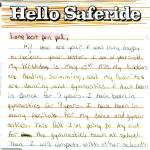 Hello Saferide
Long lost pen pal,
Hi! How are you? I was very happy
to recieve your letter. I am 12 years old,
My birthday is may 1976. My hobbies
are Reading, Swimming, and My favorites
are dancing and gymnastics. I have been
in dance for 9 years. I have been in
gymnastics for 7 years. I have been in
many recitals for my dance and gym-
nastics. This fall I'm going to try out
for the gymnastics team at school.
Then I will compete with other schools.